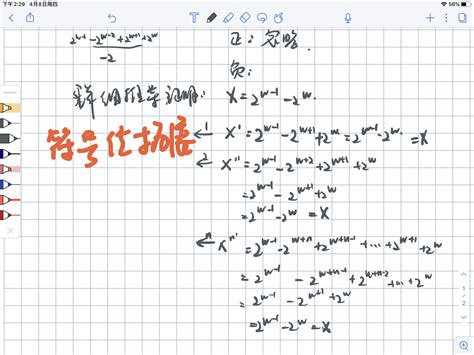 下午2:29 4月8日周四
56%
2^{w-1}-2^{w-2}+2^{w+1}+2^w
-2
正:忽略.
负:
详细推导证明:
X=2^{w-1}-2^w.
符号位扩展
1 X'=2^{w-1}-2^{w+1}+2^w=2^{w-1}-2^w. =X
2 X''=2^{w-1}-2^{w+2}+2^{w+1}+2^w
=2^{w-1}-2^{w+1}+2^w
=2^{w-1}-2^w=X
n X^{n'}=2^{w-1}-2^{w+n}+2^{w+n-1}+...+2^{w+1}+2^w
=2^{w-1}-2^{w+n-1}+2^{w+n-2}+...+2^w
=2^{w-1}-2^{w+1}+2^w
=2^{w-1}-2^w=X
1
2